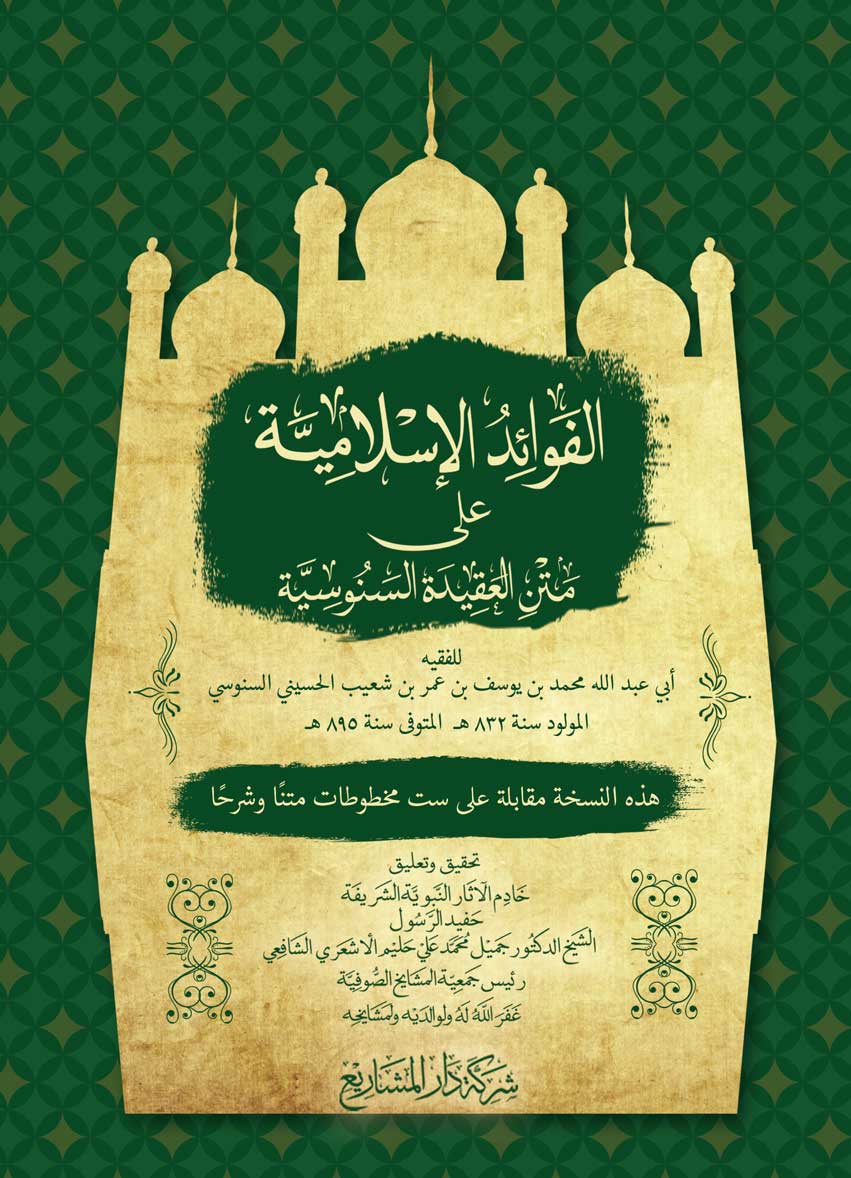 الفَوَائِدُ الإِسْلَامِيَّة
على
مَتْنِ العَقِيدَة السَنُوسِيَّة
للفقيه
أبي عبد الله محمد بن يوسف بن عمر بن شعيب الحسيني السنوسي
المولود سنة ٨٣٢ هـ المتوفى سنة ٨٩٥ هـ
هذه النسخة مقابلة على ست مخطوطات متنًا وشرحًا
تحقيق وتعليق
خَادِم الآثَار النَّبَوِيَّة الشَرِيفَة
حَفِيد الرَّسُول
الشَّيخ الدكتور جَمِيل مُحَمَّد عَلِي حَلِيم الأشعَرِي الشَّافِعِي
رئيس جَمعِيَّة المشَايخ الصُّوفِيَّة
غَفَرَ اللَّهُ لَهُ وَلوَالدَيْه وَلمَشَايخِه
شَرِكَة دَار المشَارِيع